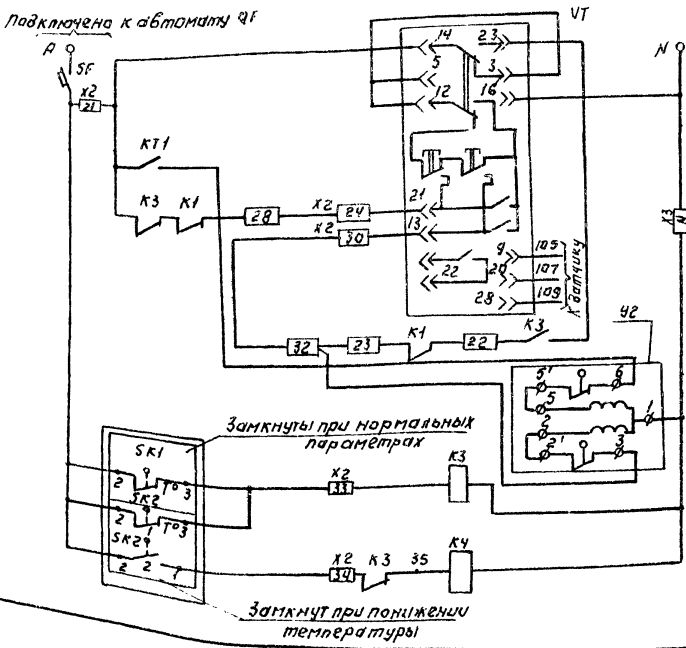 Подключена к автомату QF
A
SF
X2
21
KT1
K3
K1
28
X2
24
X2
30
VT
14
23
5
3
12
16
21
13
22
9
20
28
105
107
109
К датчику
N
X3
N
32
23
K1
22
K3
У2
5'
6
5
2
1
2'
3
Замкнуты при нормальных
параметрах
SK1
2
T°
3
SK2
2
1
T°
3
SK2
2
2
1
X2
33
K3
X2
34
K3
35
K4
Замкнут при понижении
температуры